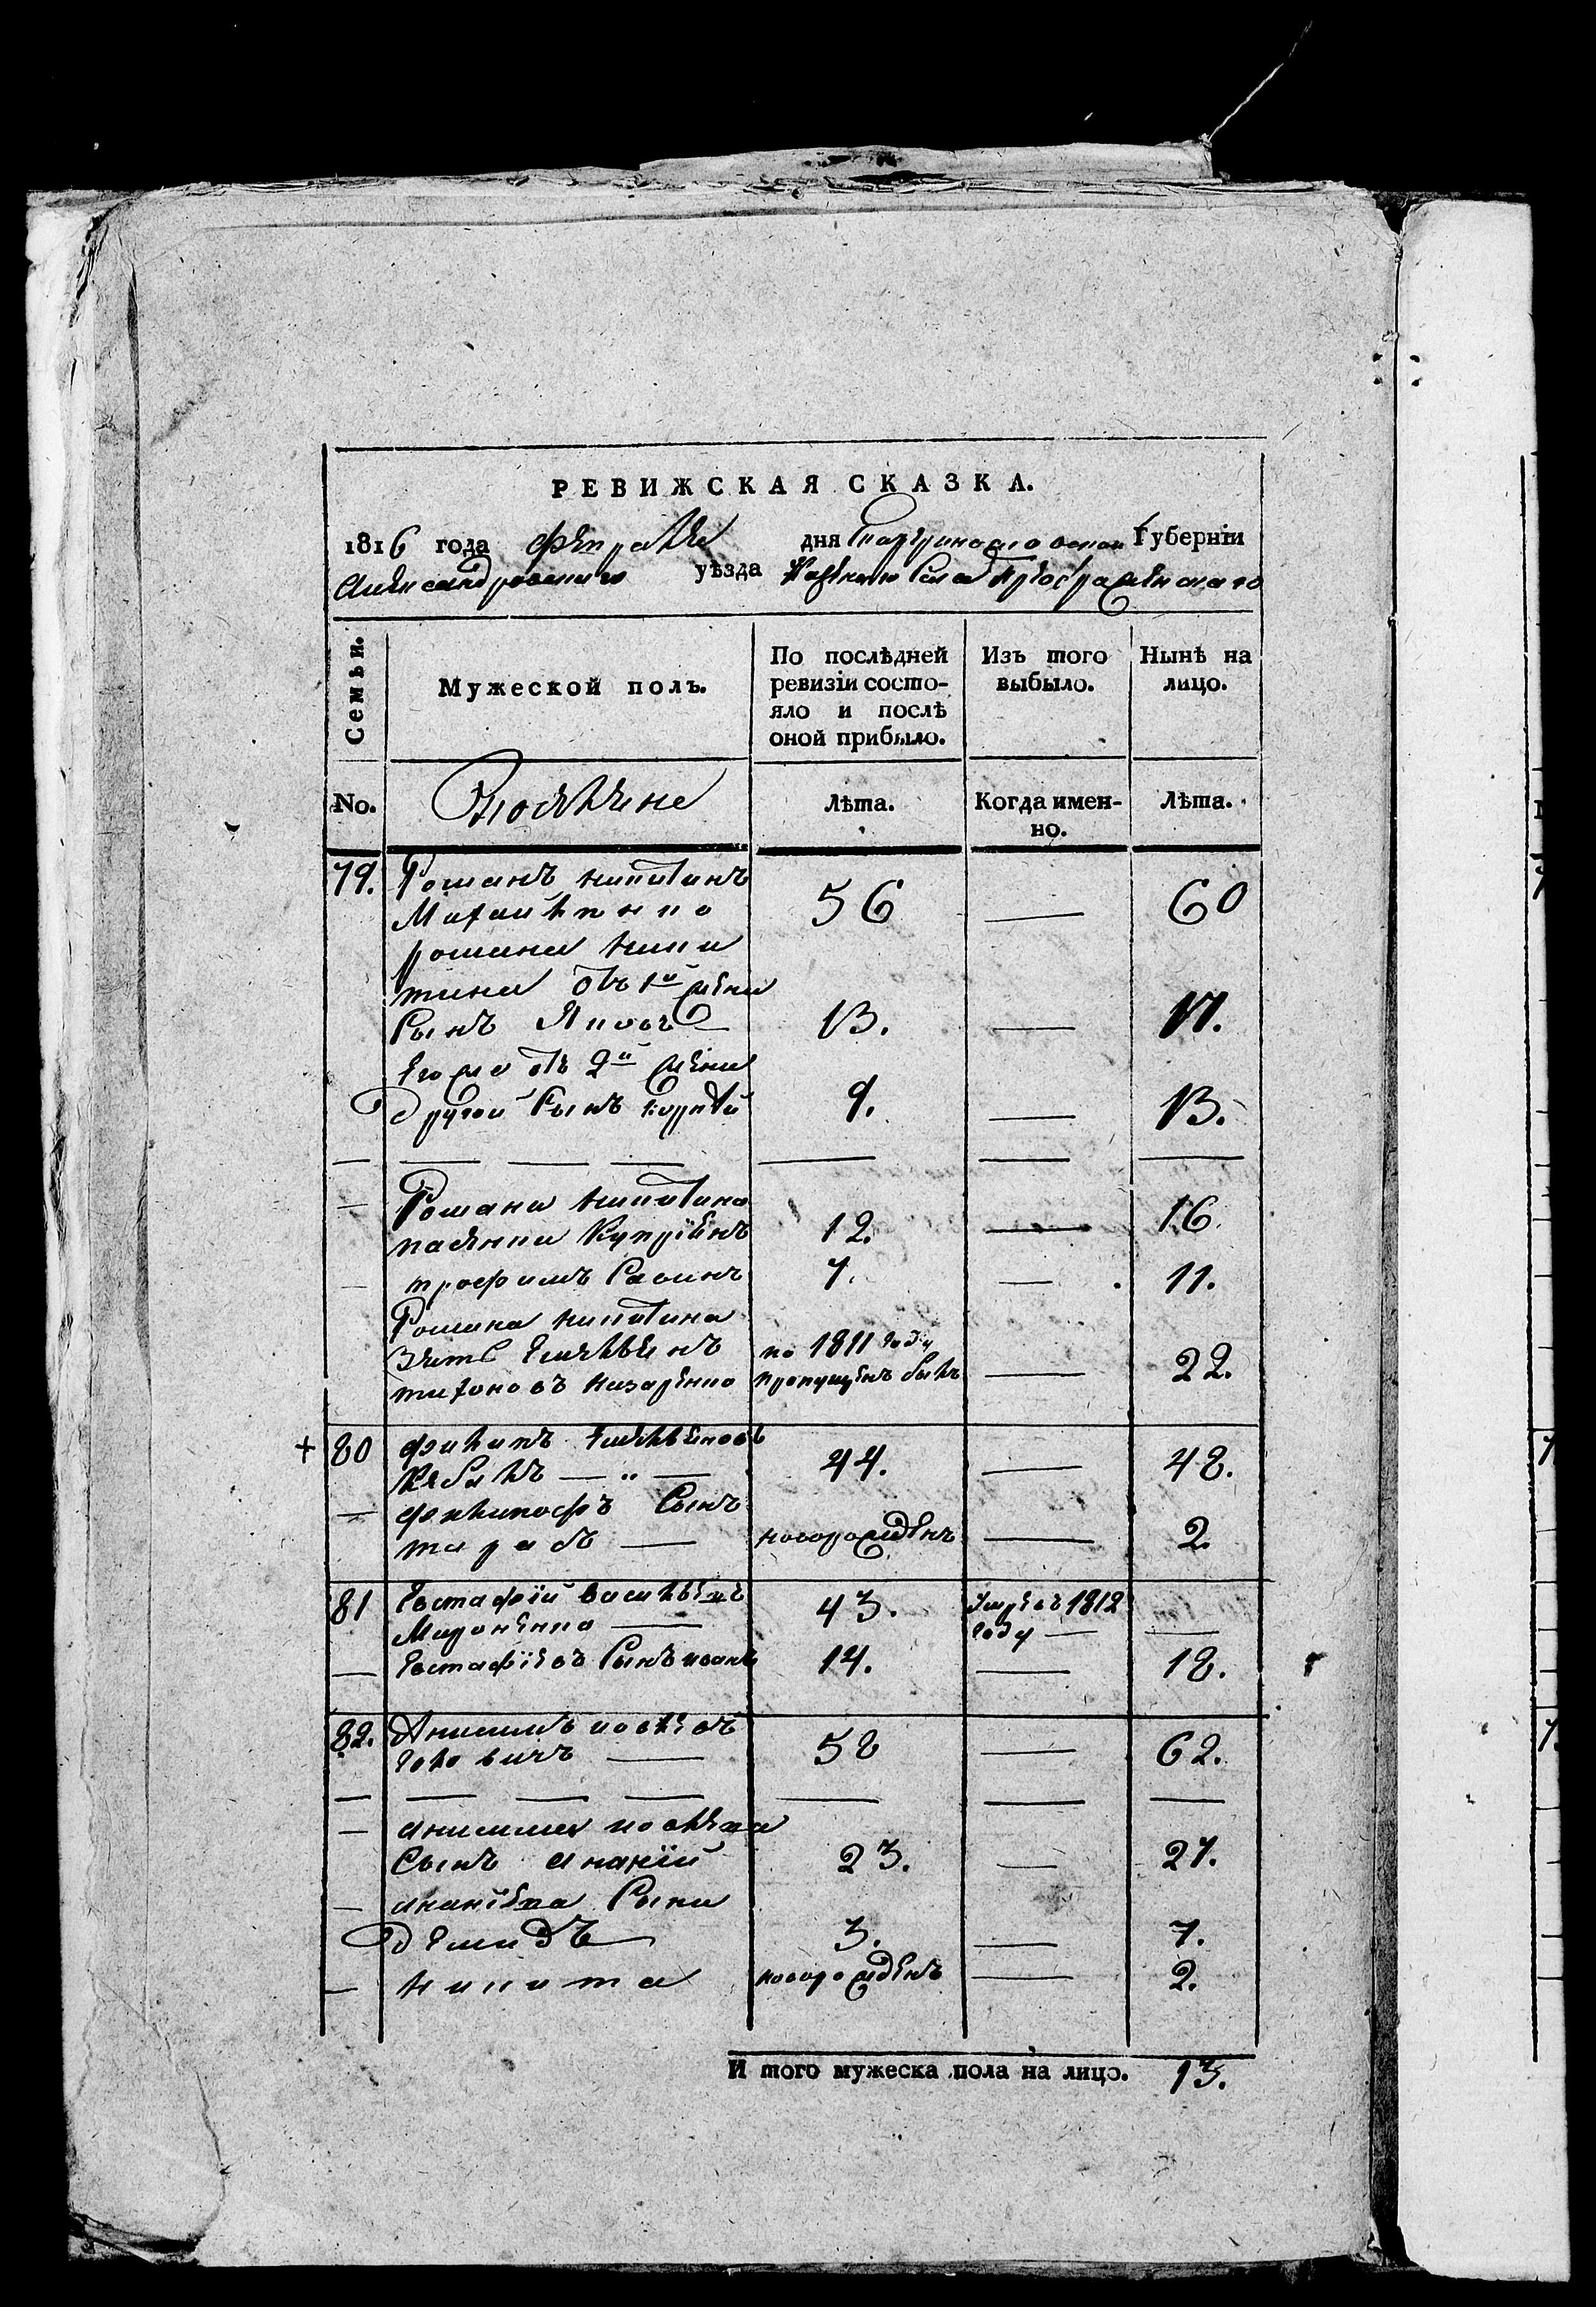 РЕВИЖСКАЯ СКАЗКА.
1816 года февраля дня Екатеринославской Губерніи
Александровскаго уѣзда Казеннаго Села Преображенскаго
Семьи.
Мужеской полъ.
По послѣдней ревизіи состо-
яло и послѣ
оной прибыло.
Изъ того
выбыло.
Нынѣ на
лицо.
No.
Поселяне
Лѣта.
Когда имен-
но.
Лѣта.
79. Романъ никитинъ
56 — 60
романа ники
тина отъ 1й жены
Сынъ Яковъ 13. — 17.
Егоже отъ 2й жены
Другой Сынъ корнѣй 9. — 13.
— Романа никитина
пасынки Купріянъ 12. — 16.
— трофимъ Савинъ 7. — 11.
Романа никитина
Зять Емельянъ по 1811 году
тихоновъ назаренко пропущенъ былъ — 22.
+ 80 филипъ Емельяновъ
44. — 48.
— филиповъ Сынъ
тарасъ — новорожденъ — 2.
81 Евстафій васильевъ 43. Умре въ 1812
Мироненко — году — —
— Евстафіевъ Сынъ иванъ 14. — 18.
82. Анисимъ иовлевъ
58 — 62.
— анисима иовлева
Сынъ ананій 23. — 27.
— ананіева Сыны
Демидъ 3. — 7.
— никита новорожденъ — 2.
И того мужеска пола на лицо. 13.